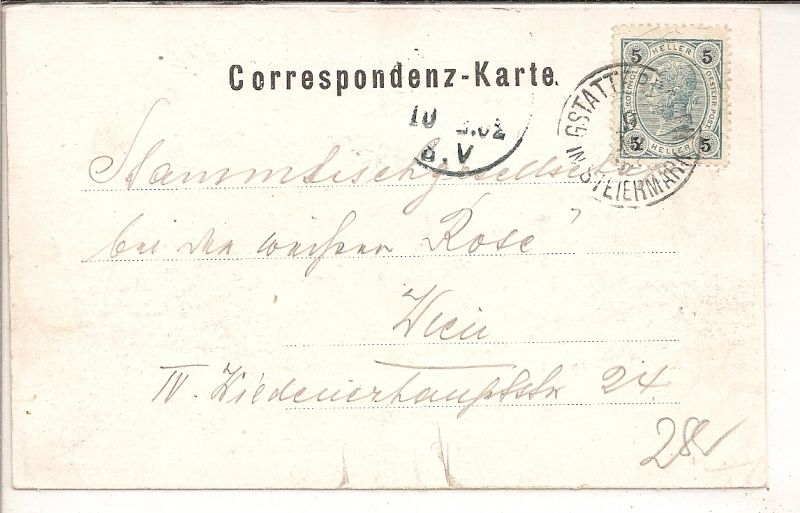 Correspondenz-Karte.
5 HELLER 5
OESTERR. POST
5 HELLER 5
GSTATTERB
IN STEIERMARK
10 3.02
8.V
Stammtischgesellschaft
bei der weißen Rose
Wien
IV. Wiedenerhauptstr 24.
28